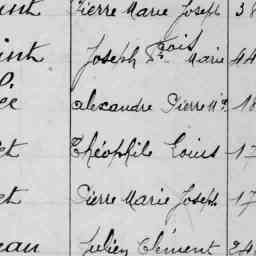 int Pierre Marie Joseph 38
int Joseph Fçois Marie 44
ée alexandre Pierre Mie 18
et Théophile Louis 17
et Pierre Marie Joseph 17
eau Julien Clément 24